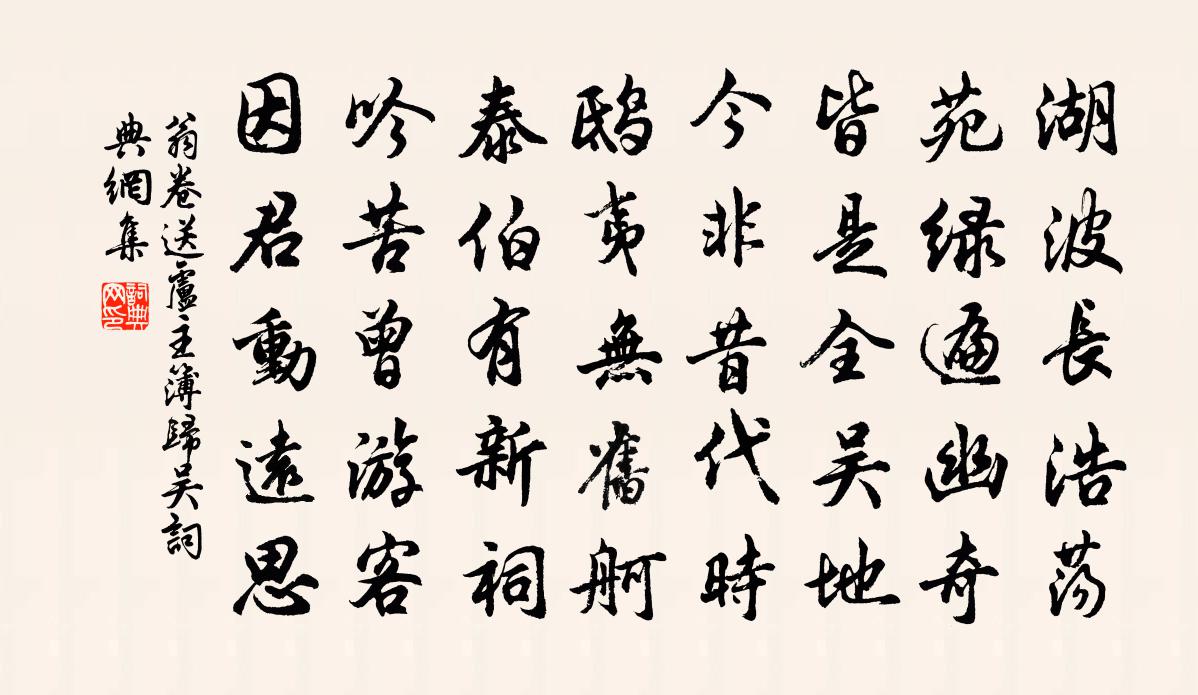 湖波長浩荡
苑绿遍幽奇
皆是全吴地
今非昔代時
鸱夷無舊舸
泰伯有新祠
吟苦曾游客
因君動遠思
翁卷送盧主簿歸吴詞
典網集
詞典
网印